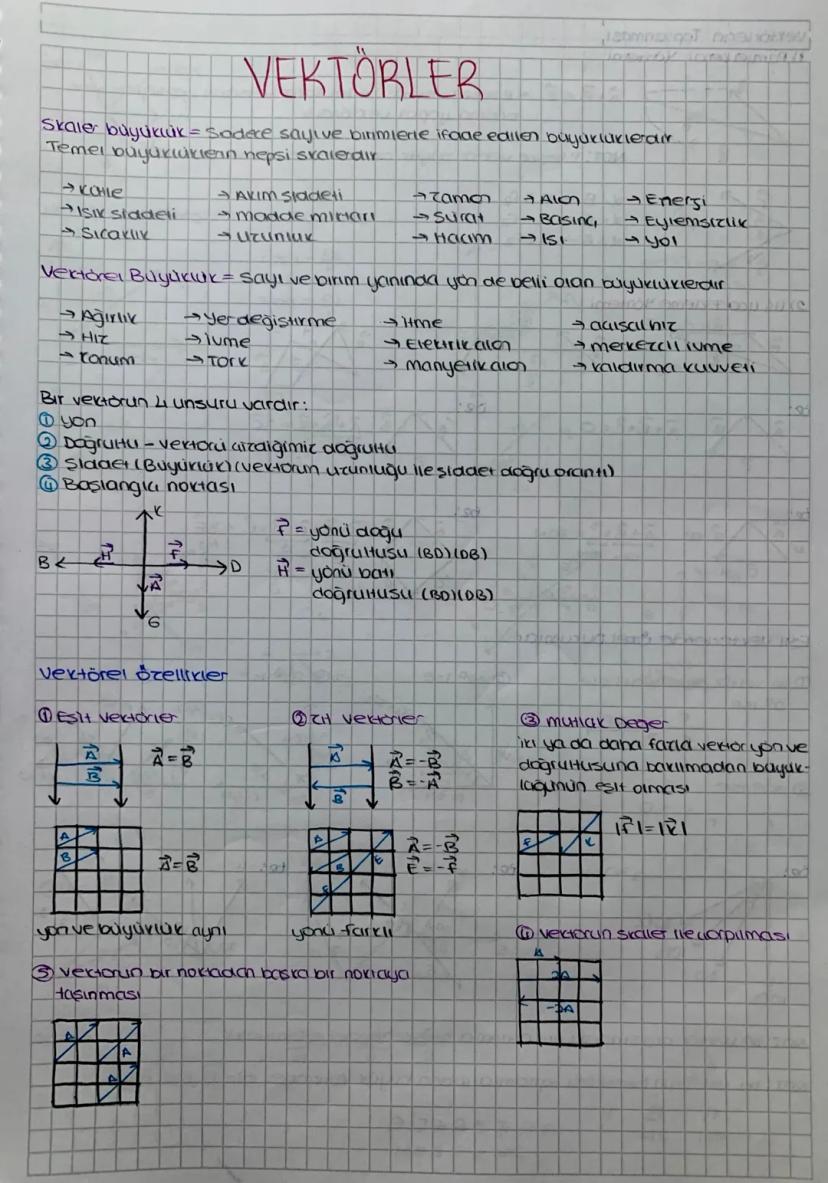 VEKTÖRLER
Skaler büyüklük = Sadece sayı ve birimlerle ifade edilen büyüklüklerdir
Temel büyüklüklerin hepsi skalerdir
→ Kütle → Akım şiddeti → Zaman → Alan → Enerji
→ Işık şiddeti → madde miktarı → Sürat → Basınç → Eylemsizlik
→ Sıcaklık → Uzunluk → Hacim → ISI → yol
Vektörel Büyüklük = sayı ve birim yanında yön de belli olan büyüklüklerdir
→ Ağırlık → Yer değiştirme → İtme → açısal hız
→ Hız → ivme → Elektrik alan → merkezcil ivme
→ Konum → Tork → manyetik alan → kaldırma kuvveti
Bir vektörün 4 unsuru vardır:
① yön
② Doğrultu – vektörü çizdiğimiz doğrultu
③ Şiddet (Büyüklük) (vektörün uzunluğu ile şiddet doğru orantı)
④ Başlangıç noktası
K
B H F D
A
G
F = yönü doğu
doğrultusu (BD)(DB)
H = yönü batı
doğrultusu (BD)(DB)
Vektörel özellikler
① Eşit vektörler
A
B
A = B
A
B
A = B
yön ve büyüklük aynı
② Zıt vektörler
A
B
A = -B
B = -A
A
B E
F
A = -B
E = -F
yönü farklı
③ mutlak Değer
iki ya da daha fazla vektör yön ve
doğrultusuna bakılmadan büyük-
lüğünün eşit olması
F K
|F| = |K|
④ vektörün skaler ile çarpılması
A
2A
-2A
⑤ vektörün bir noktadan başka bir noktaya
taşınması
A
A
A